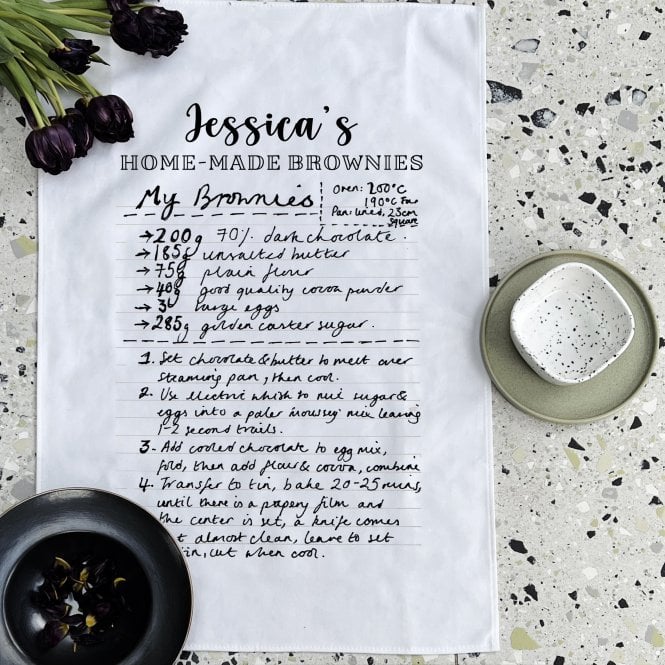 Jessica's
HOME-MADE BROWNIES
My Brownies
Oven: 200°C
190°C Fan
Pan: lined, 23cm
square
→ 200g 70% dark chocolate.
→ 185g unsalted butter
→ 75g plain flour
→ 40g good quality cocoa powder
→ 3 large eggs
→ 285g golden caster sugar.
1. Set chocolate & butter to melt over
steaming pan, then cool.
2. Use electric whisk to mix sugar &
eggs into a paler 'moussey' mix leaving
1-2 second trails.
3. Add cooled chocolate to egg mix,
fold, then add flour & cocoa, combine
4. Transfer to tin, bake 20-25 mins,
until there is a papery film and
the center is set, a knife comes
almost clean, leave to set
in, cut when cool.